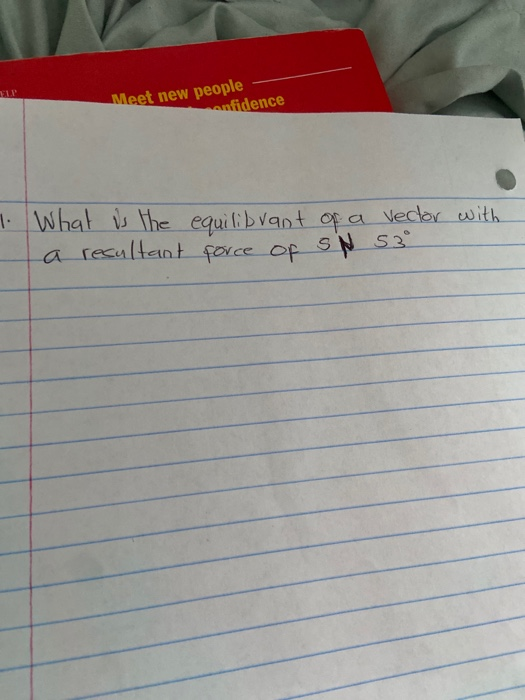 Meet new people
1. What is the equilibrant of a vector with
a resultant force of 5 N 53°